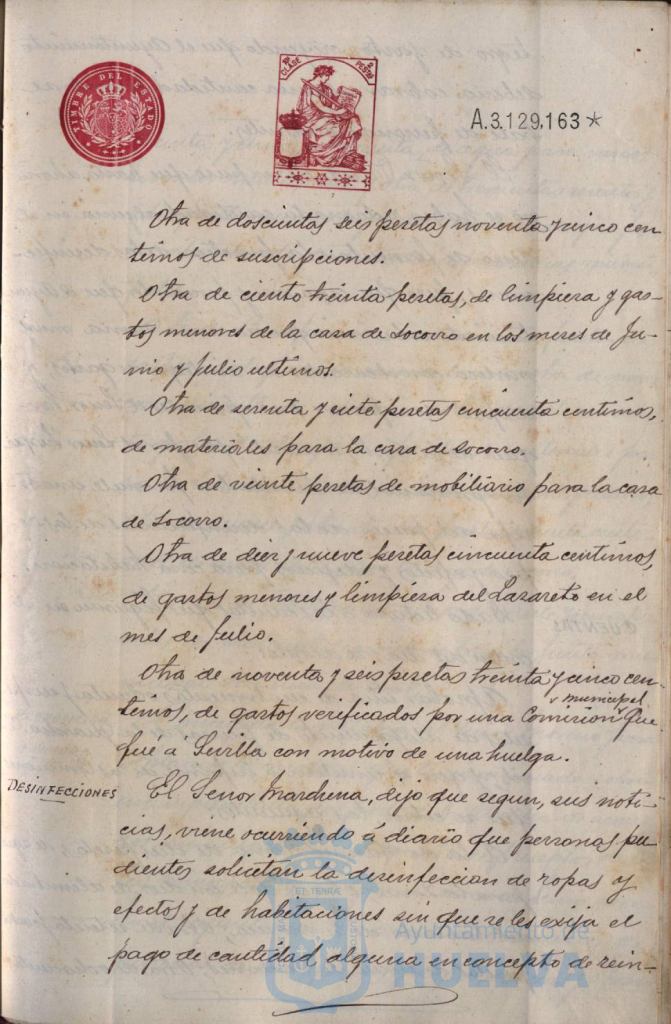 TIMBRE DEL ESTADO
CLASE
PESETAS
A.3.129.163*
Otra de doscientas seis pesetas noventa y cinco cen-
timos de suscripciones.
Otra de ciento treinta pesetas, de limpieza y gas-
tos menores de la casa de Socorro en los meses de Ju-
nio y Julio ultimos.
Otra de setenta y siete pesetas cincuenta centimos,
de materiales para la casa de Socorro.
Otra de veinte pesetas de mobiliario para la casa
de Socorro.
Otra de diez y nueve pesetas cincuenta centimos,
de gastos menores y limpieza del Lazareto en el
mes de Julio.
Otra de noventa y seis pesetas treinta y cinco cen-
municipal
timos, de gastos verificados por una Comision que
fué á Sevilla con motivo de una huelga.
DESINFECCIONES
El Señor Marchena, dijo que segun, sus noti-
cias, viene ocurriendo á diario que personas pu-
dientes solicitan la desinfeccion de ropas y
efectos y de habitaciones sin que se les exija el
pago de cantidad alguna en concepto de rein-
Ayuntamiento de
HUELVA